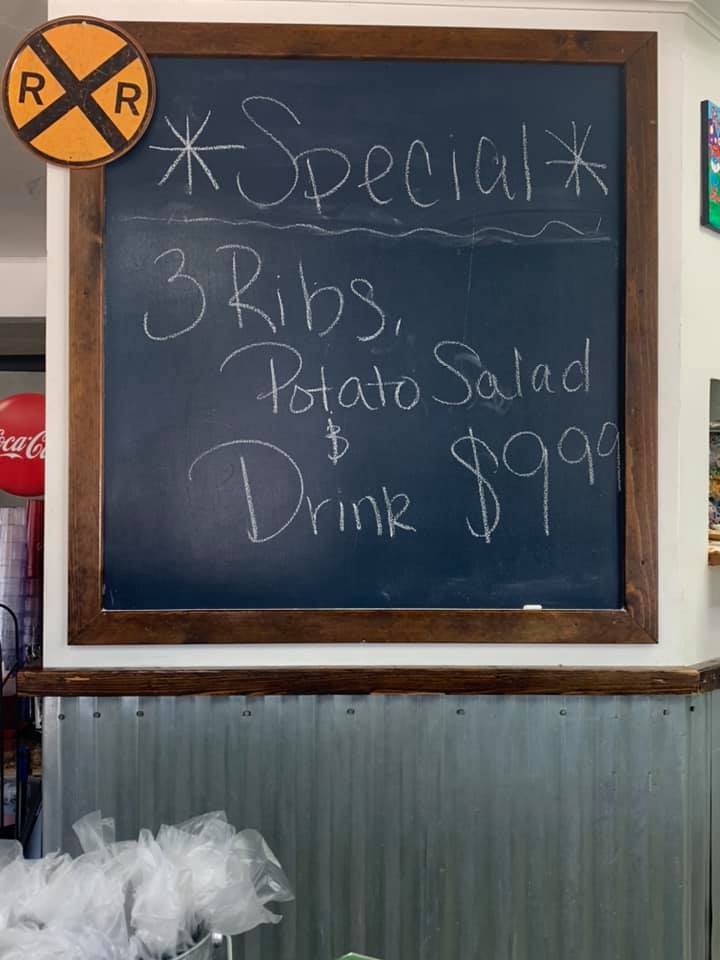 R R
*Special*
3 Ribs,
Potato Salad
&
Drink $9⁹⁹
Coca-C